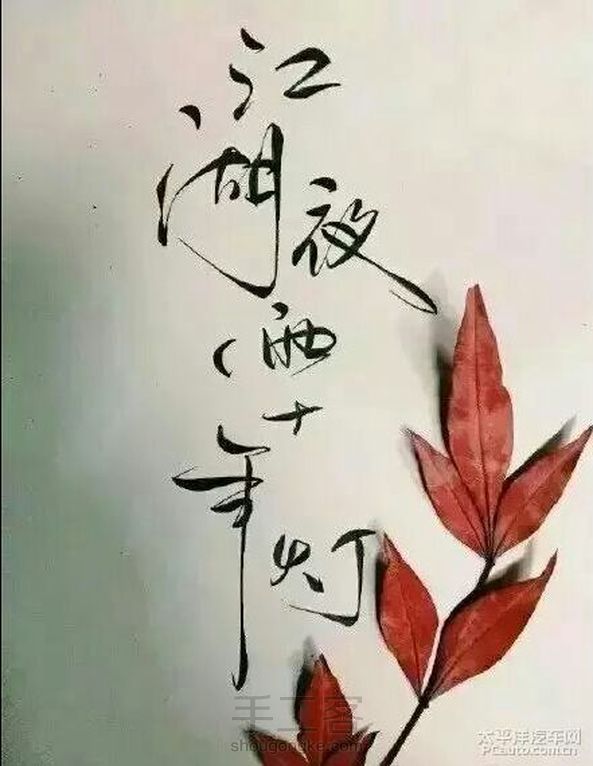 江湖夜雨十年灯
手工客
shougongke.com
太平洋汽车网
PCauto.com.cn